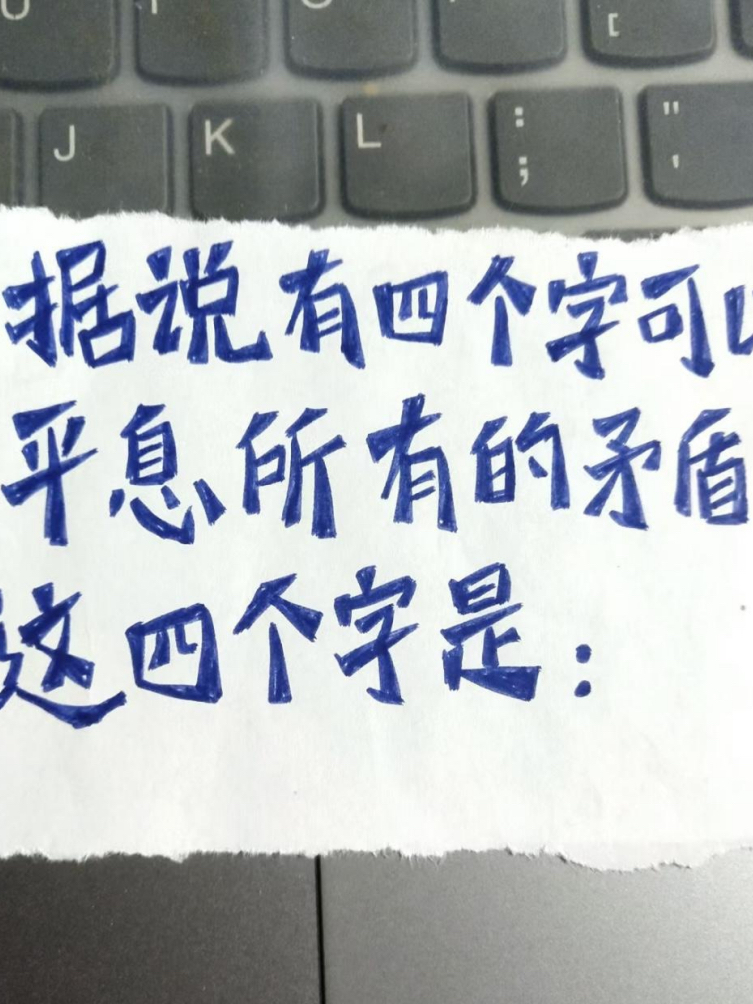 J K L : ; " '
[
据说有四个字可以
平息所有的矛盾
这四个字是：